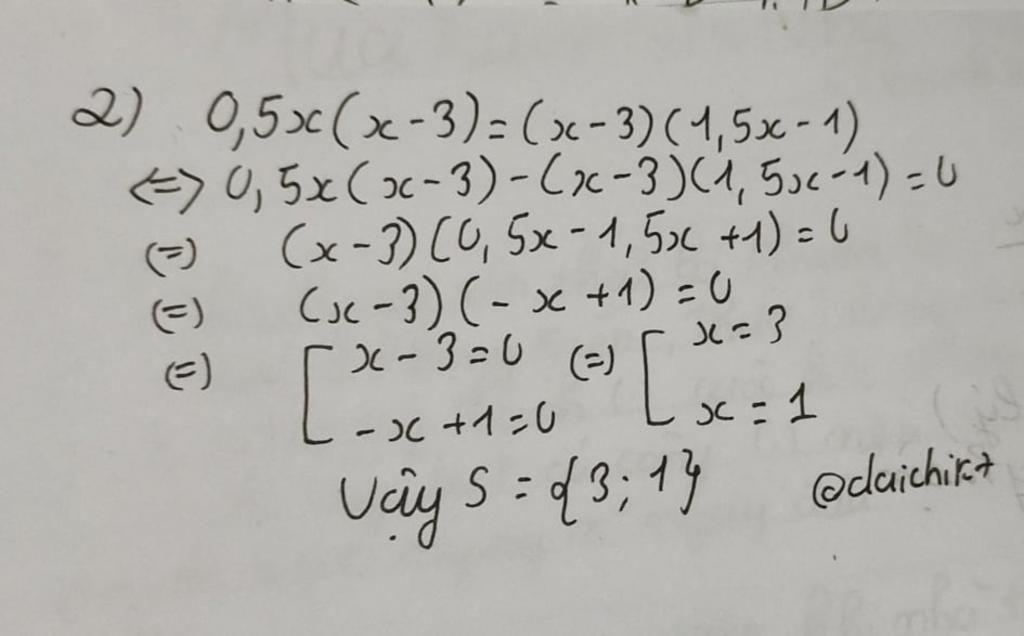 2) 0,5x(x-3)=(x-3)(1,5x-1)
<=> 0,5x(x-3)-(x-3)(1,5x-1)=0
(=) (x-3)(0,5x-1,5x+1)=0
(=) (x-3)(-x+1)=0
(=) [ x-3=0 (=) [ x=3
-x+1=0 x=1
Vậy S={3;1}